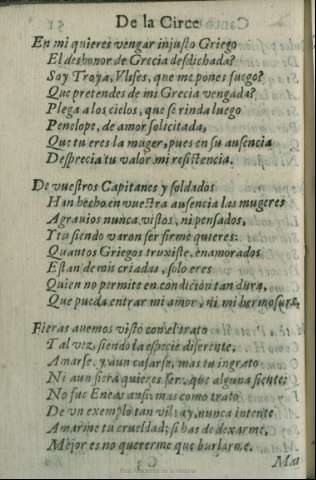 De la Circe
En mi quieres vengar injusto Griego
El deshonor de Grecia desdichada?
Soy Troya, Vlises, que me pones fuego?
Que pretendes de mi Grecia vengada?
Plega a los cielos, que se rinda luego
Penelope, de amor solicitada,
Que tu eres la muger, pues en su ausencia
Desprecia tu valor mi resistencia.
De vuestros Capitanes y soldados
Han hecho en vuestra ausencia las mugeres
Agrauios nunca vistos, ni pensados,
Y tu siendo varon ser firme quieres:
Quantos Griegos truxiste, enamorados
Estan de mis criadas, solo eres
Quien no permite en condicion tan dura,
Que pueda entrar mi amor, ni mi hermosura.
Fieras auemos visto con el trato
Tal vez, siendo la especie diferente,
Amarse, y aun casarse, mas tu ingrato
Ni aun fiera quieres ser, que alguna siente:
No fue Eneas ansi, mas como trato
De vn exemplo tan vil, ay, nunca intente
Amarme tu crueldad, si has de dexarme,
Mejor es no quererme que burlarme.
Mas